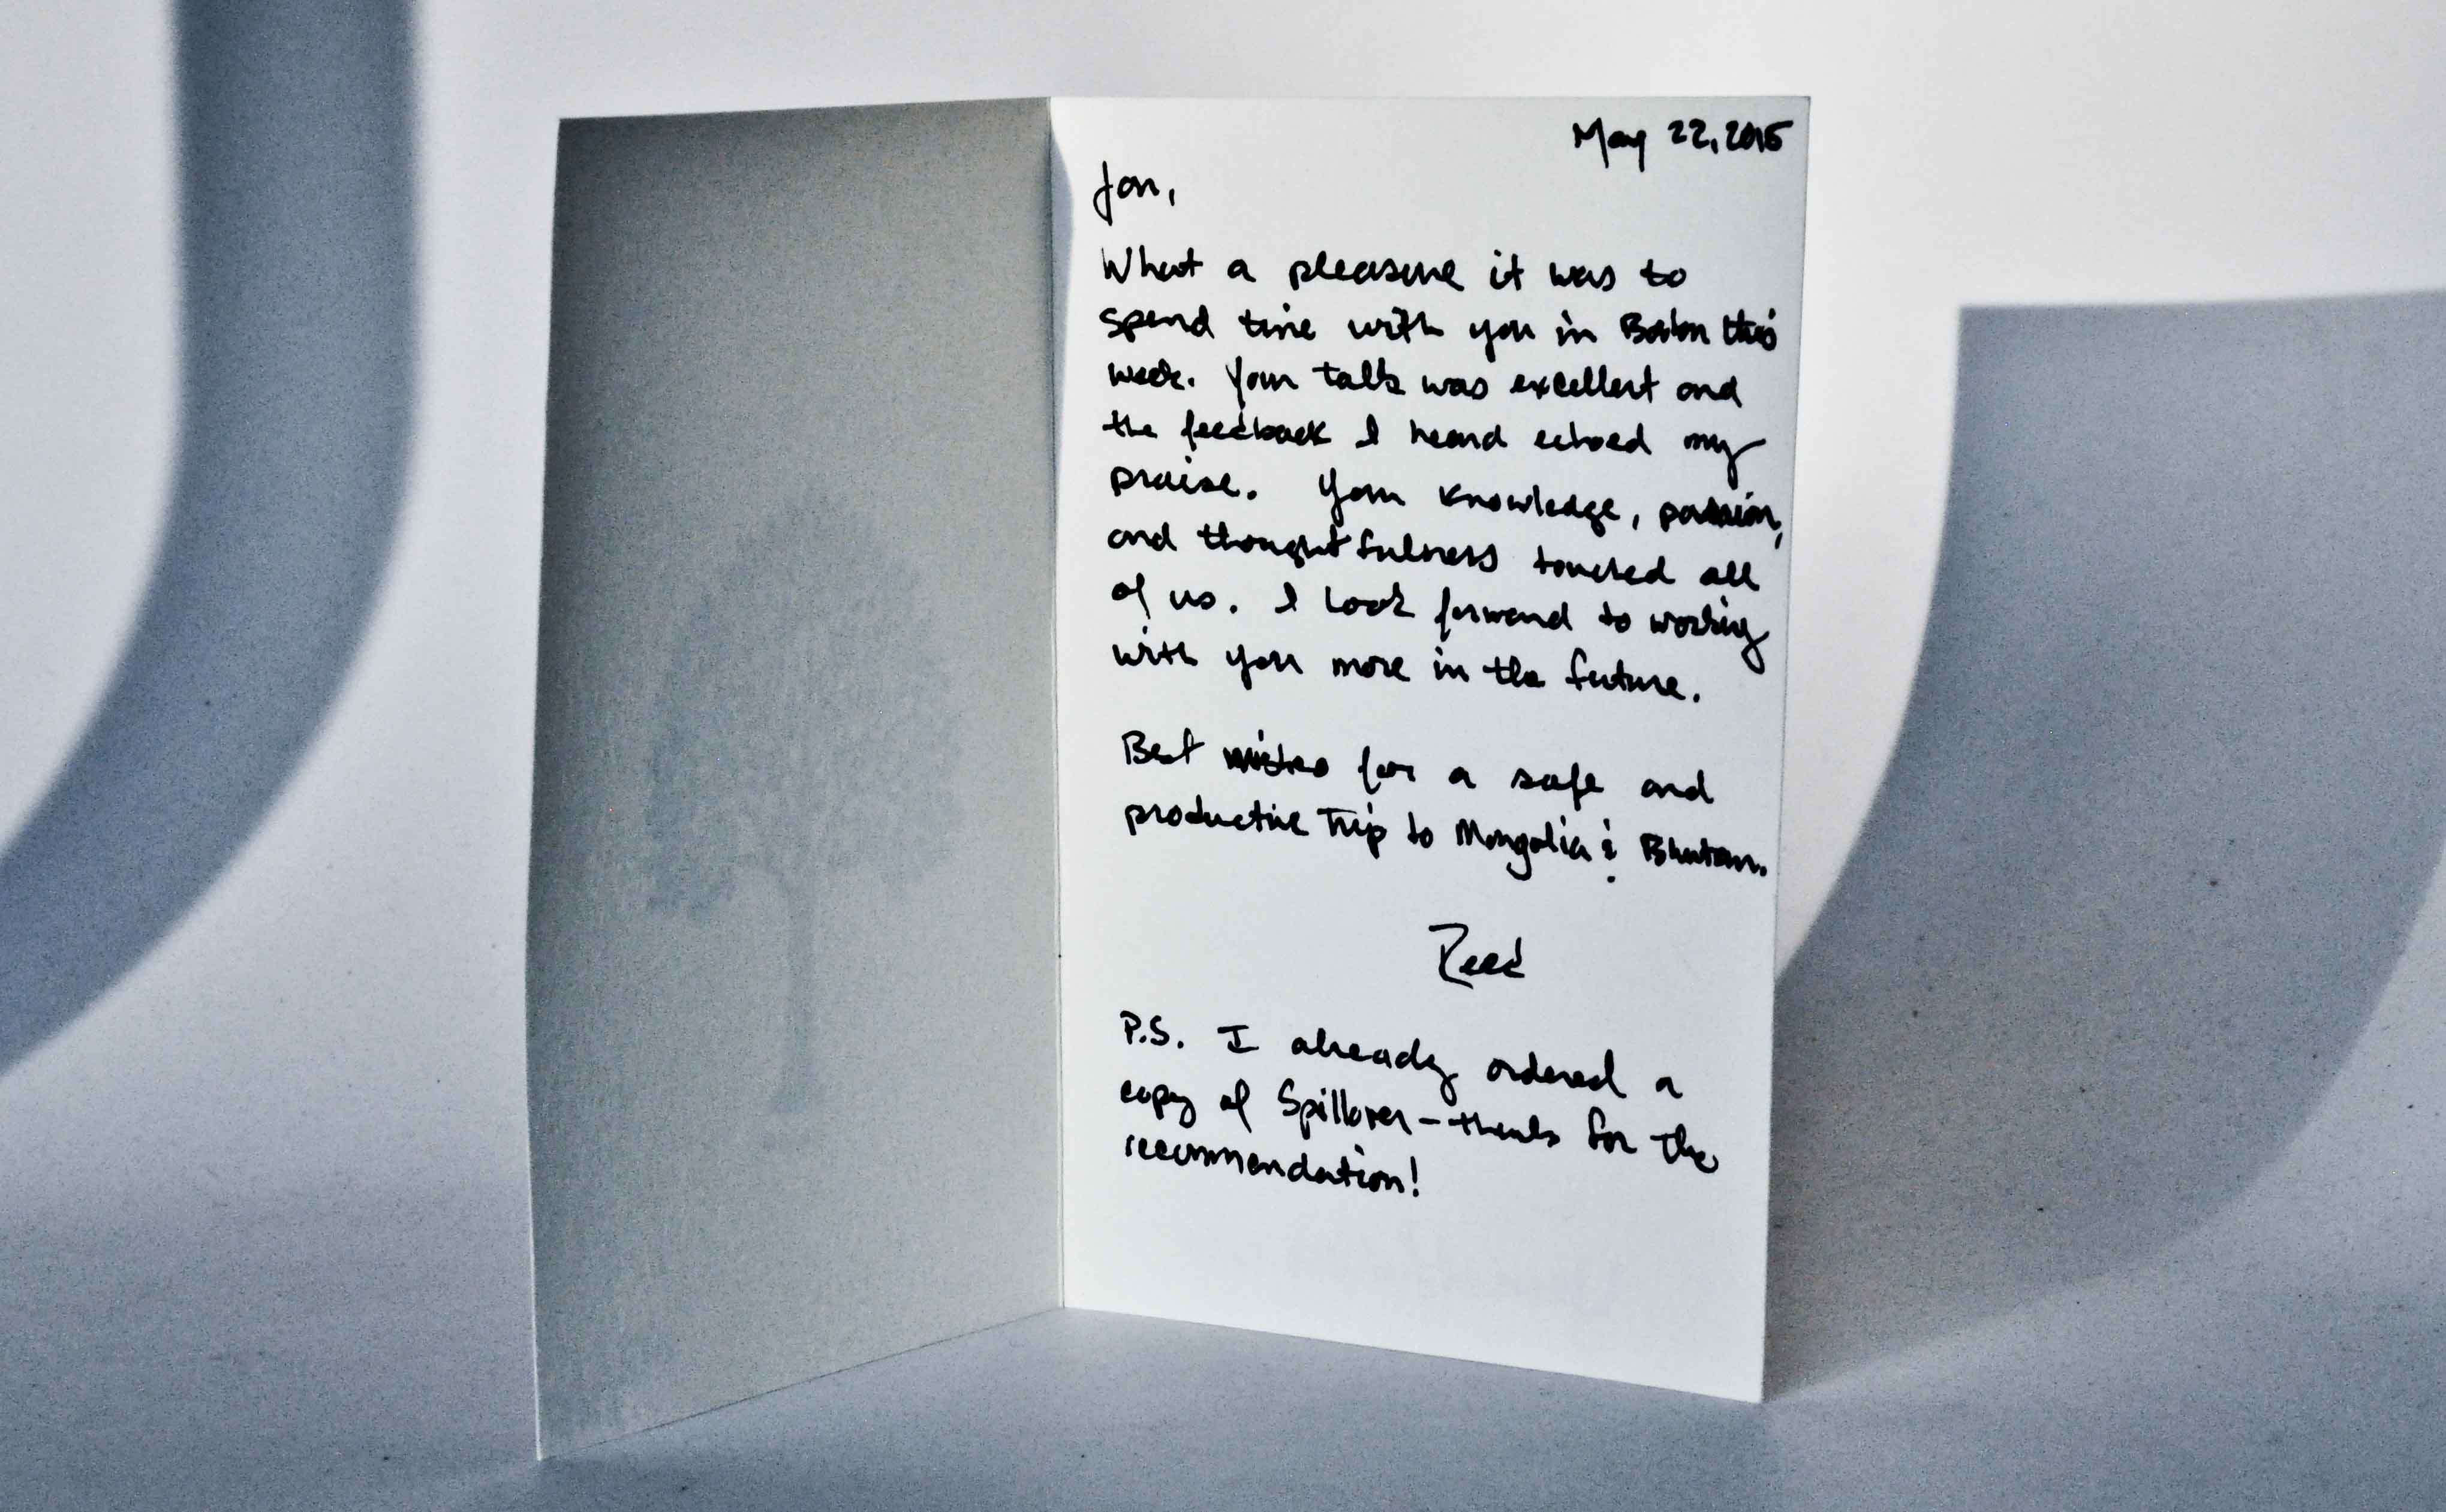 May 22, 2015
Jon,
What a pleasure it was to
spend time with you in Boston this
week. Your talk was excellent and
the feedback I heard echoed my
praise. Your knowledge, passion,
and thoughtfulness touched all
of us. I look forward to working
with you more in the future.
Best wishes for a safe and
productive Trip to Mongolia & Bhutan.
Reed
P.S. I already ordered a
copy of Spillover – thanks for the
recommendation!